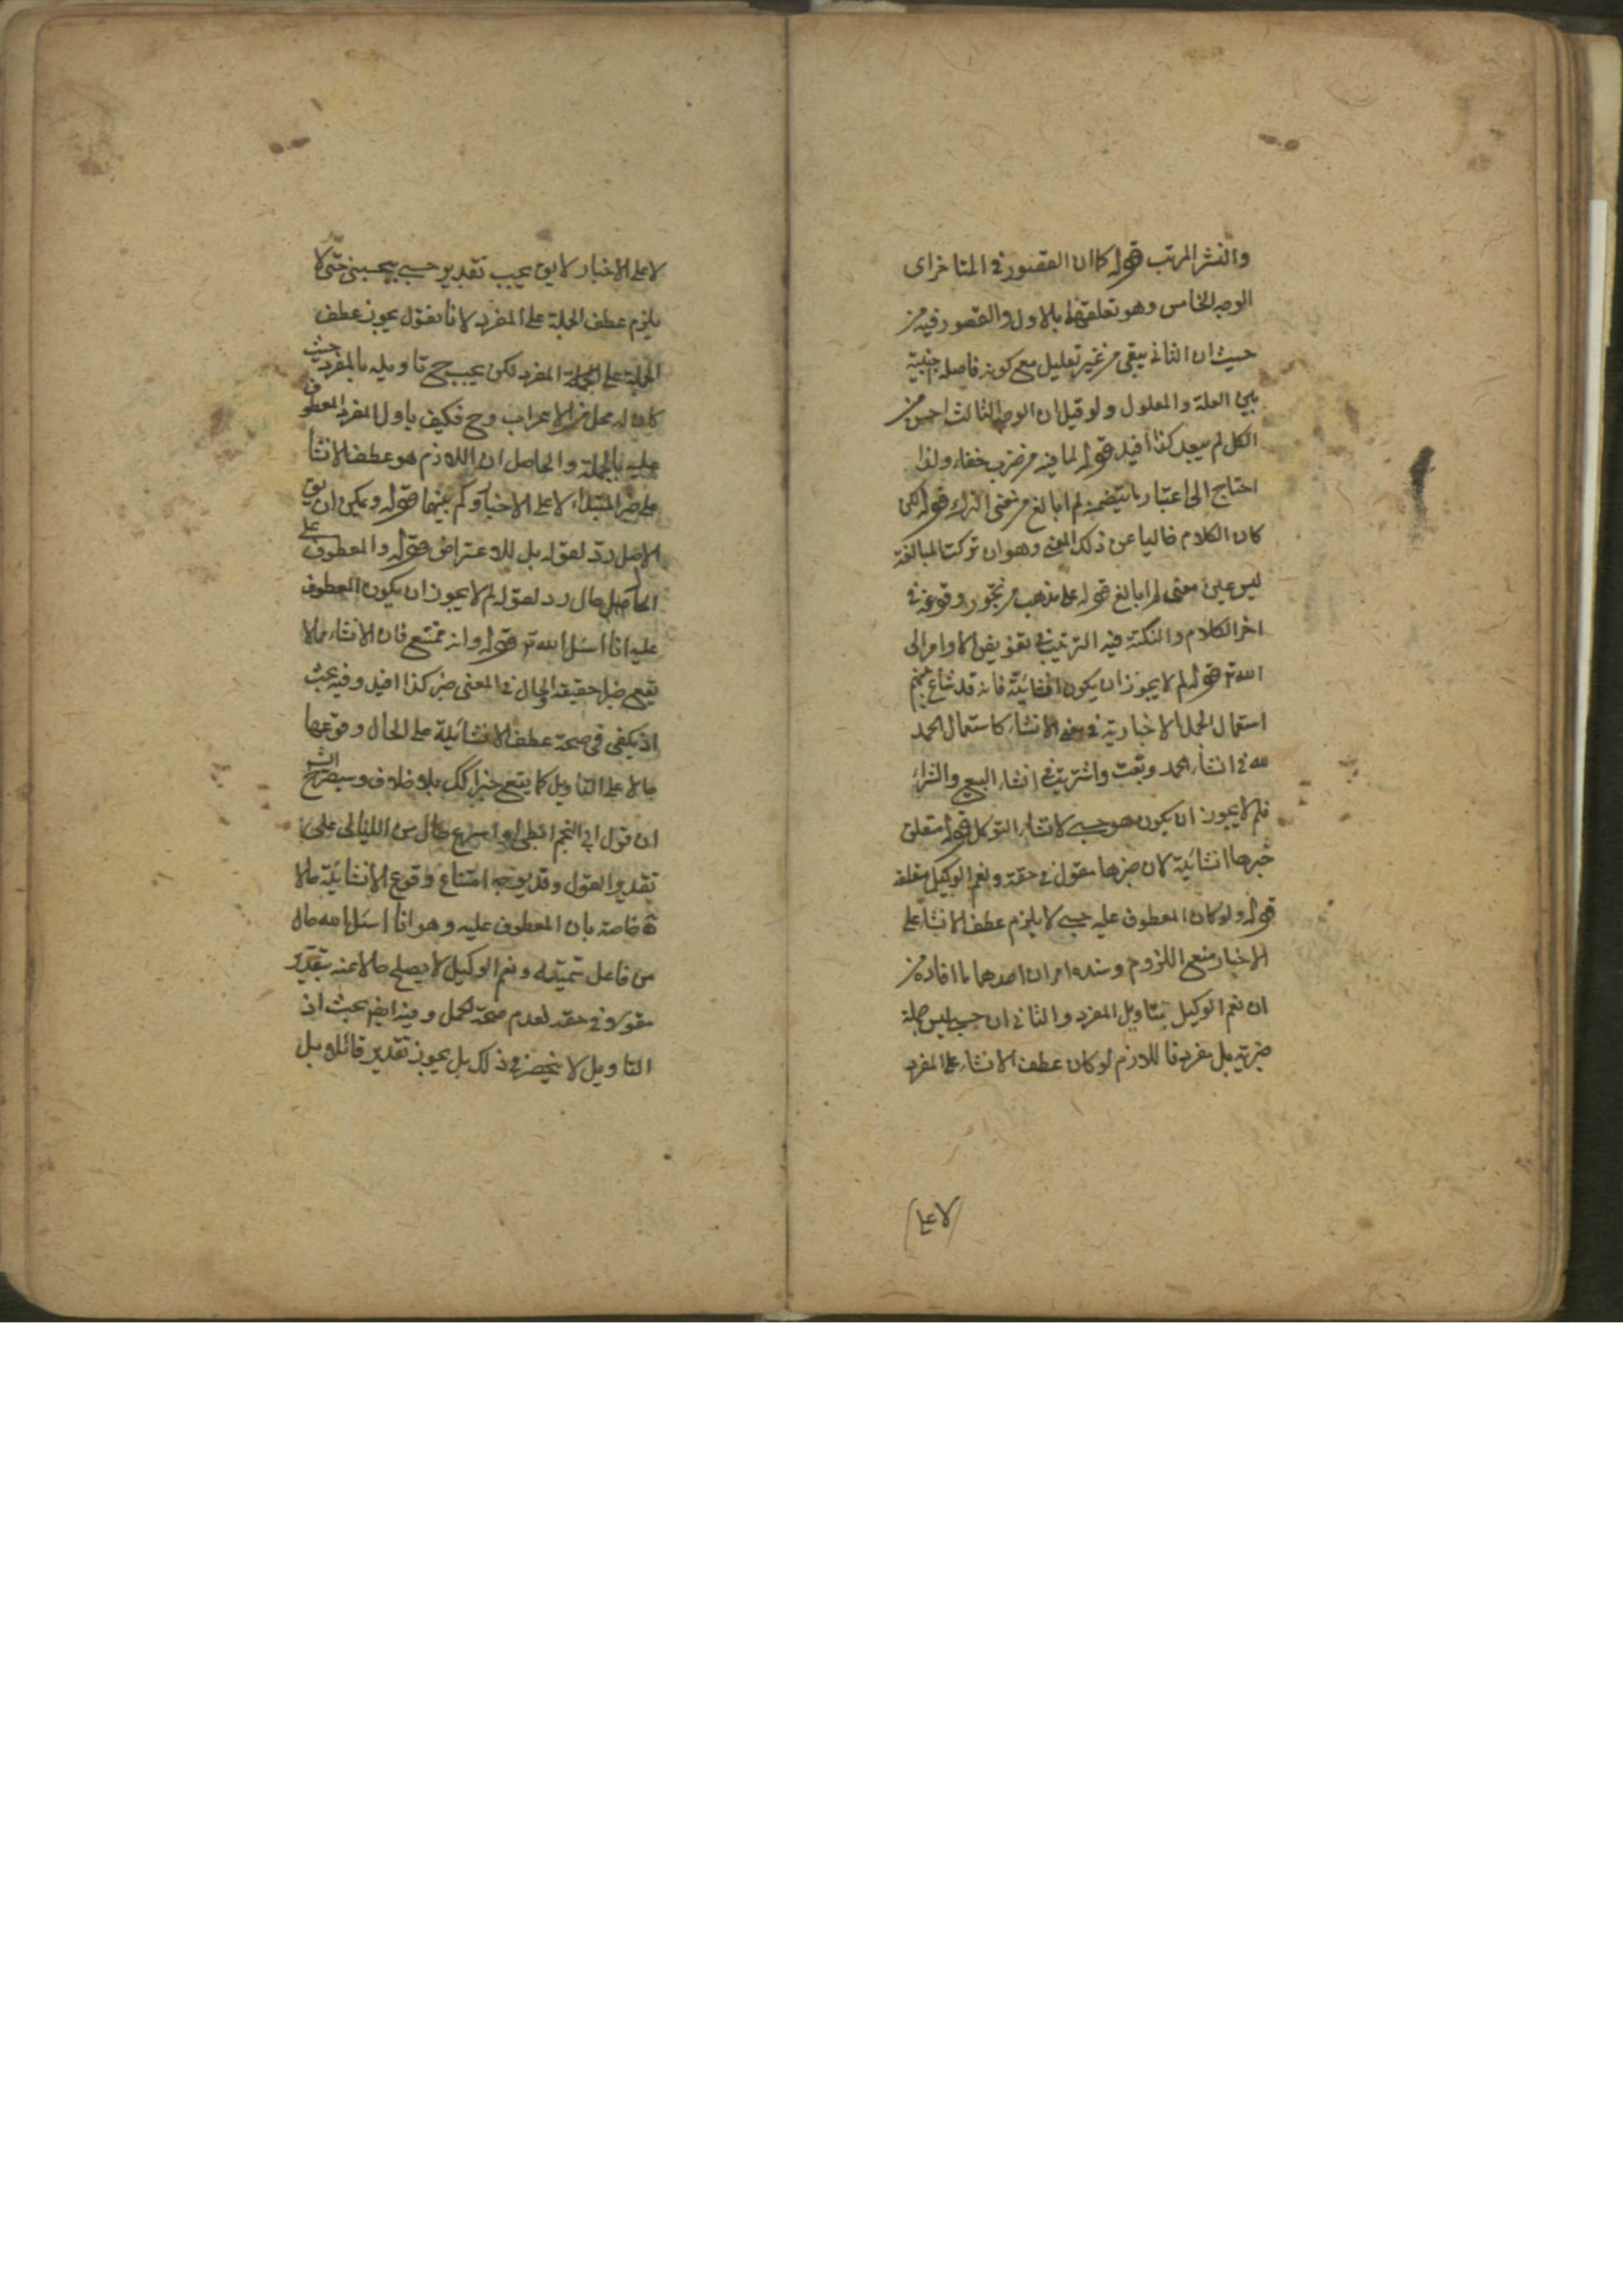 والنشر المرتب قوله كما ان القصور في المتاخر اى
الوجه الخامس وهو تعلقهما بالاول والقصور فيه من
حيث ان الثاني يبقى من غير تعليل مع كونه فاصلة اجنبية
بين العلة والمعلول ولو قيل ان الوجه الثالث احسن من
الكل لم يبعد كذا افيد قوله لما فيه من ضرب خفاء ولذا
احتاج الى اعتبار ما يتضمنه لم ابالغ من معنى الترك قوله لكن
كان الكلام خاليا عن ذلك المعنى وهو ان تركت المبالغة
ليس عين معنى لم ابالغ قوله على مذهب من تجوز وقوعه في
اخر الكلام والنكتة فيه الترغيب في تفويض الاوامر الى
الله تع قوله لم لا يجوز ان يكون انشائية فانه قد شاع بينهم
استعمال الجمل الاخبارية في معنى الانشاء كاستعمال الحمد
لله في انشاء الحمد وبعت واشتريت في انشاء البيع والشراء
فلم لا يجوز ان يكون هو حسبى لانشاء التوكل قوله متعلق
خبرها انشائية لان خبرها مقول في حقه ونعم الوكيل متعلقه
قوله ولو كان المعطوف عليه حسبى لا يلزم عطف الانشاء على
الاخبار منع اللزوم وسنده امران احدهما ما افاده من
ان نعم الوكيل بتاويل المفرد والثاني ان حسبى ليس جملة
خبرية بل مفرد فاللازم لو كان عطف الانشاء على المفرد
لا على
لا على الاخبار لا يق يجب تقدير حسبى بيحسبنى حتى لا
يلزم عطف الجملة على المفرد لانا نقول يجوز عطف
الجملة على الجملة المفرد لكن يجب ح تاويله بالمفرد حيث
كان له محل من الاعراب وح فكيف ياول المفرد المعطوف
عليه بالجملة والحاصل ان اللازم هو عطف الانشأ
على خبر المبتداء لا على الاخبار وكم بينهما قوله ويمكن ان يق
الاصل رد لقوله بل للاعتراض قوله والمعطوف على
الحاصل حال رد لقوله لم لا يجوز ان يكون المعطوف
عليه انا اسئل الله تع قوله وانه ممتنع فان الانشاء مالا
يقع خبرا حقيقة والحال في المعنى خبر كذا افيد وفيه بحث
اذ يكفى في صحة عطف الانشائية على الحال وقوعها
حالا على التاويل كما يقع خبرا كك بلا خلاف وسيصرح الش
ان قول ابى النجم ابطئ او اسرع حال من الليالى على
تقدير القول وقد يوجه امتناع وقوع الانشائية حالا
خاصة بان المعطوف عليه وهو انا اسئل الله حال
من فاعل تممته ونعم الوكيل لا يصلح حالا عنه بتقدير
مقولا في حقه لعدم صحة الحمل وفيه ايضا بحث اذ
التاويل لا ينحصر في ذلك بل يجوز تقدير قائلا بل